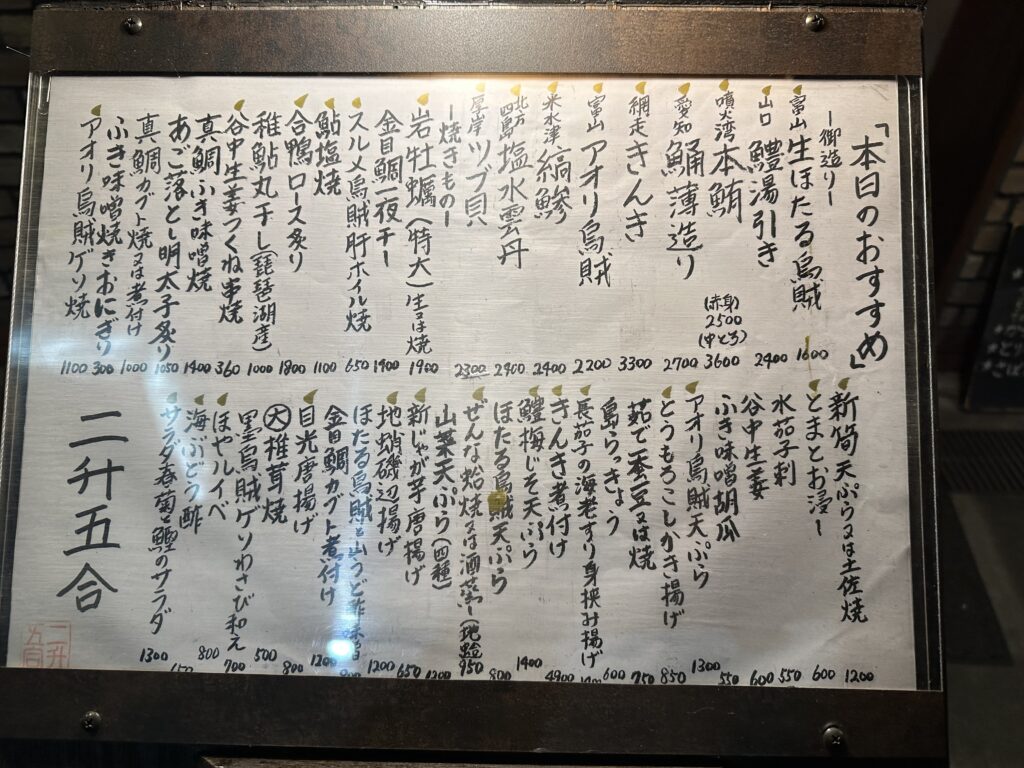 「本日のおすすめ」
ー御造りー
富山 生ほたる烏賊 1600
山口 鱧湯引き 2400
噴火湾 本鮪 (赤身) 2500 (中とろ) 3600
愛知 鮪薄造り 2700
網走 きんき 3300
富山 アオリ烏賊 2200
米水津 縞鯵 2400
北方四島 塩水雲丹 2900
厚岸 ツブ貝 2300
ー焼きものー
岩牡蠣(特大)生又は焼 1900
金目鯛一夜干し 1400
スルメ烏賊肝ホイル焼 650
鮎塩焼 1100
合鴨ロース炙り 1800
稚鮎丸干し(琵琶湖産) 1000
谷中生姜つくね串焼 360
真鯛ふき味噌焼 1400
あご落とし明太子炙り 1050
真鯛カブト焼又は煮付け 1000
ふき味噌焼きおにぎり 300
アオリ烏賊ゲソ焼 1100
新筍 天ぷら又は土佐焼 1200
とまとお浸し 600
水茄子刺 550
谷中生姜 600
ふき味噌胡瓜 550
アオリ烏賊天ぷら 1300
とうもろこしかき揚げ 850
茹で蚕豆又は焼 750
島らっきょう 600
長茄子の海老すり身挟み揚げ
きんき煮付け 4900
鱧梅じそ天ぷら 1400
ほたる烏賊天ぷら 800
ぜんな蛤焼又は酒蒸し(地蛤) 950
山菜天ぷら(四種) 1200
新じゃが芋唐揚げ 650
地蛸磯辺揚げ 1200
ほたる烏賊と山うど酢味噌
金目鯛カブト煮付け 1200
目光唐揚げ 800
大椎茸焼 500
墨烏賊ゲソわさび和え 700
ほやルイベ 800
海ぶどう酢
サラダ春菊と鰹のサラダ 1300
二升五合